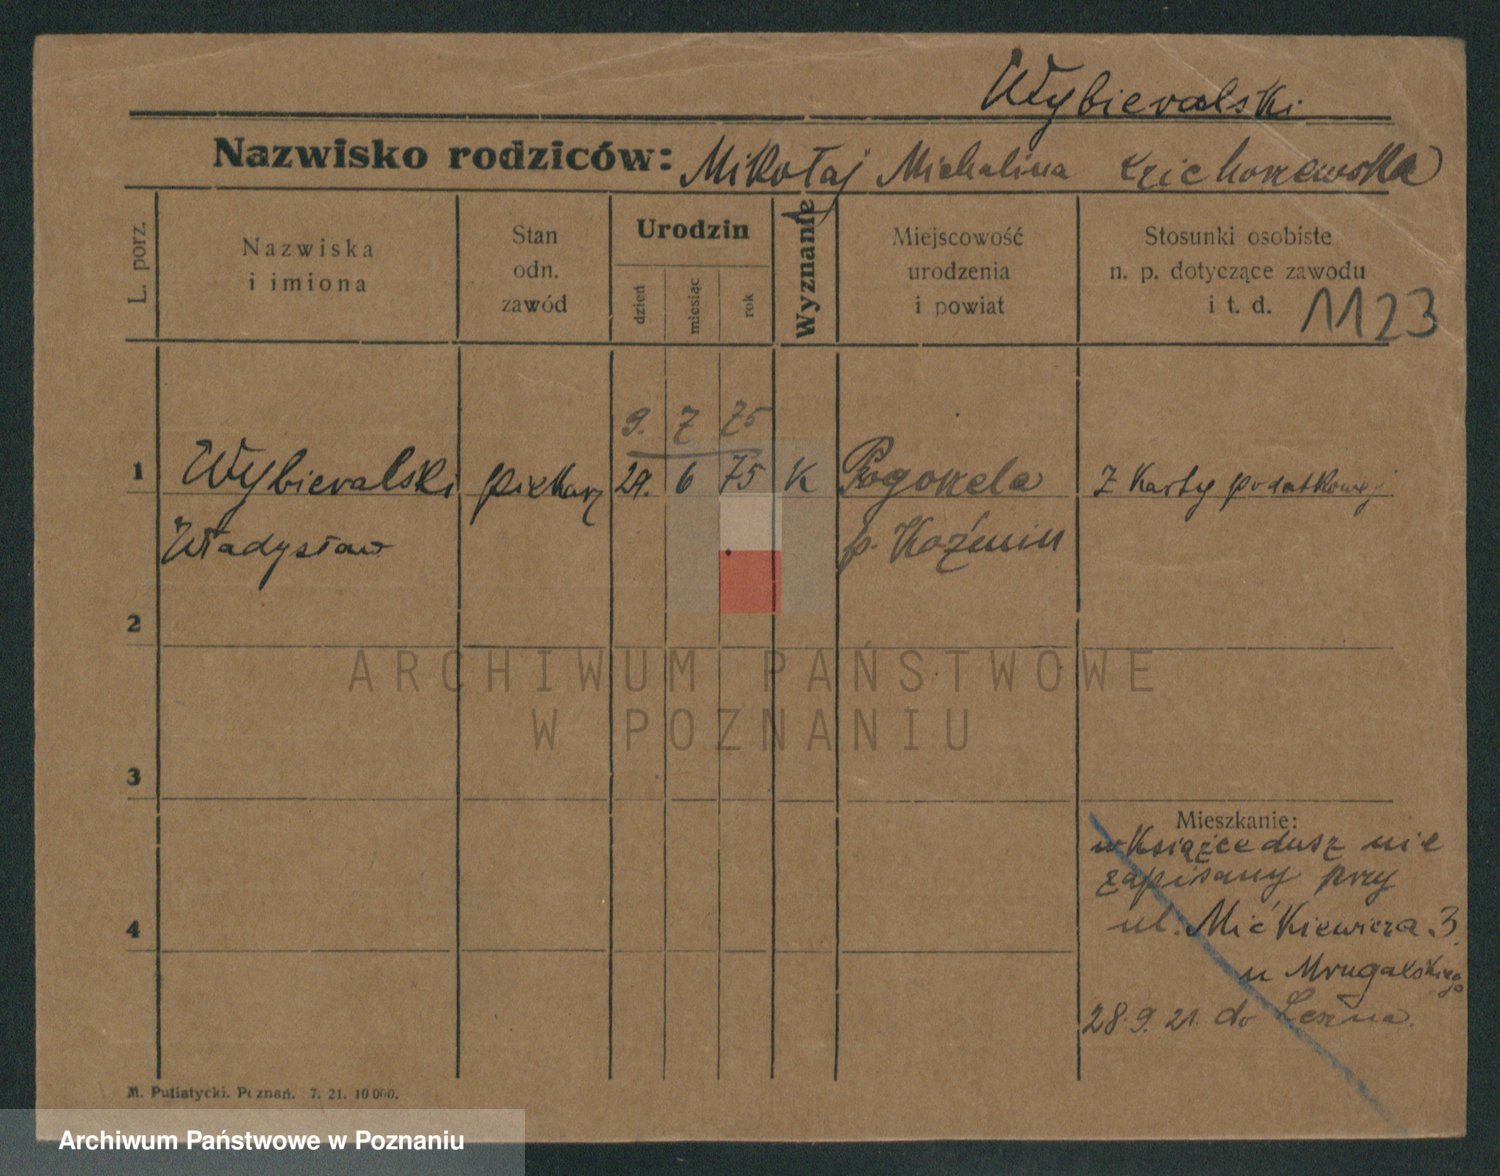 Wybieralski
Nazwisko rodziców: Mikołaj Michalina
L. porz.
Nazwiska
i imiona
Stan
odn.
zawód
Urodzin
dzień
miesiąc
rok
Wyznanie
Miejscowość
urodzenia
i powiat
Stosunki osobiste
n. p. dotyczące zawodu
i t. d.
1123
9. 7 75
1 Wybieralski piekarz 29. 6 75 K Pogorzela Z Karty podatkowej
Władysław p. Koźmin
2
3
4
Mieszkanie:
w Książce dusz nie
zapisany przy
ul. Mićkiewicza 3.
u Mrugalskiego
28.9.21. do Leszna.
M. Putiatycki. Poznań. 7. 21. 10 000.
ARCHIWUM PAŃSTWOWE
W POZNANIU
Archiwum Państwowe w Poznaniu